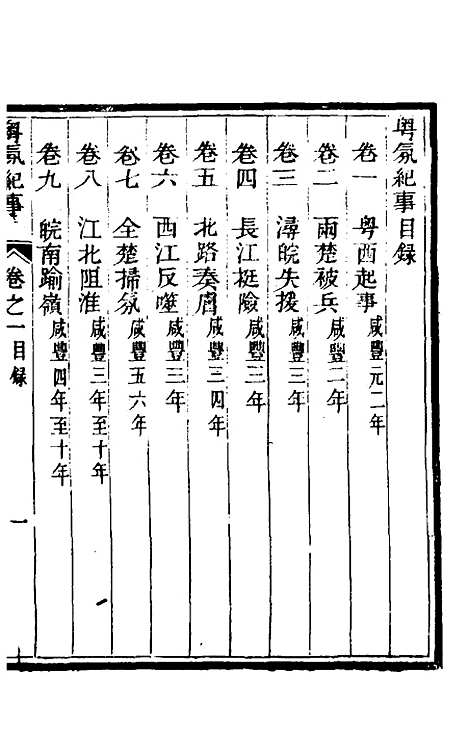 粤氛紀事目録
卷一 粤酉起事咸豐元二年
卷二 兩楚被兵咸豐二年
卷三 潯皖失援咸豐三年
卷四 長江挺險咸豐三年
卷五 北路奏膚咸豐三四年
卷六 西江反噬咸豐三年
卷七 全楚掃氛咸豐五六年
卷八 江北阻淮咸豐三年至十年
卷九 皖南踰嶺咸豐四年至十年
粤氛紀事 卷之一目録 一